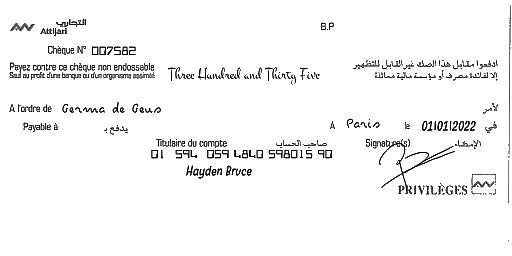 التجاري
Attijari
B.P
Chèque N° 007582
Payez contre ce chèque non endossable
Sauf au profit d'une banque ou d'un organisme assimilé
Three Hundred and Thirty Five
ادفعوا مقابل هذا الصك غير القابل للتظهير
إلا لفائدة مصرف أو مؤسسة مالية مماثلة
A l'ordre de Germa de Geus
لأمر
Payable à يدفع بـ
A Paris le 01/01/2022 في
Titulaire du compte صاحب الحساب
Signature(s) الإمضاء
01 594 059 4840 598015 90
Hayden Bruce
PRIVILÈGES